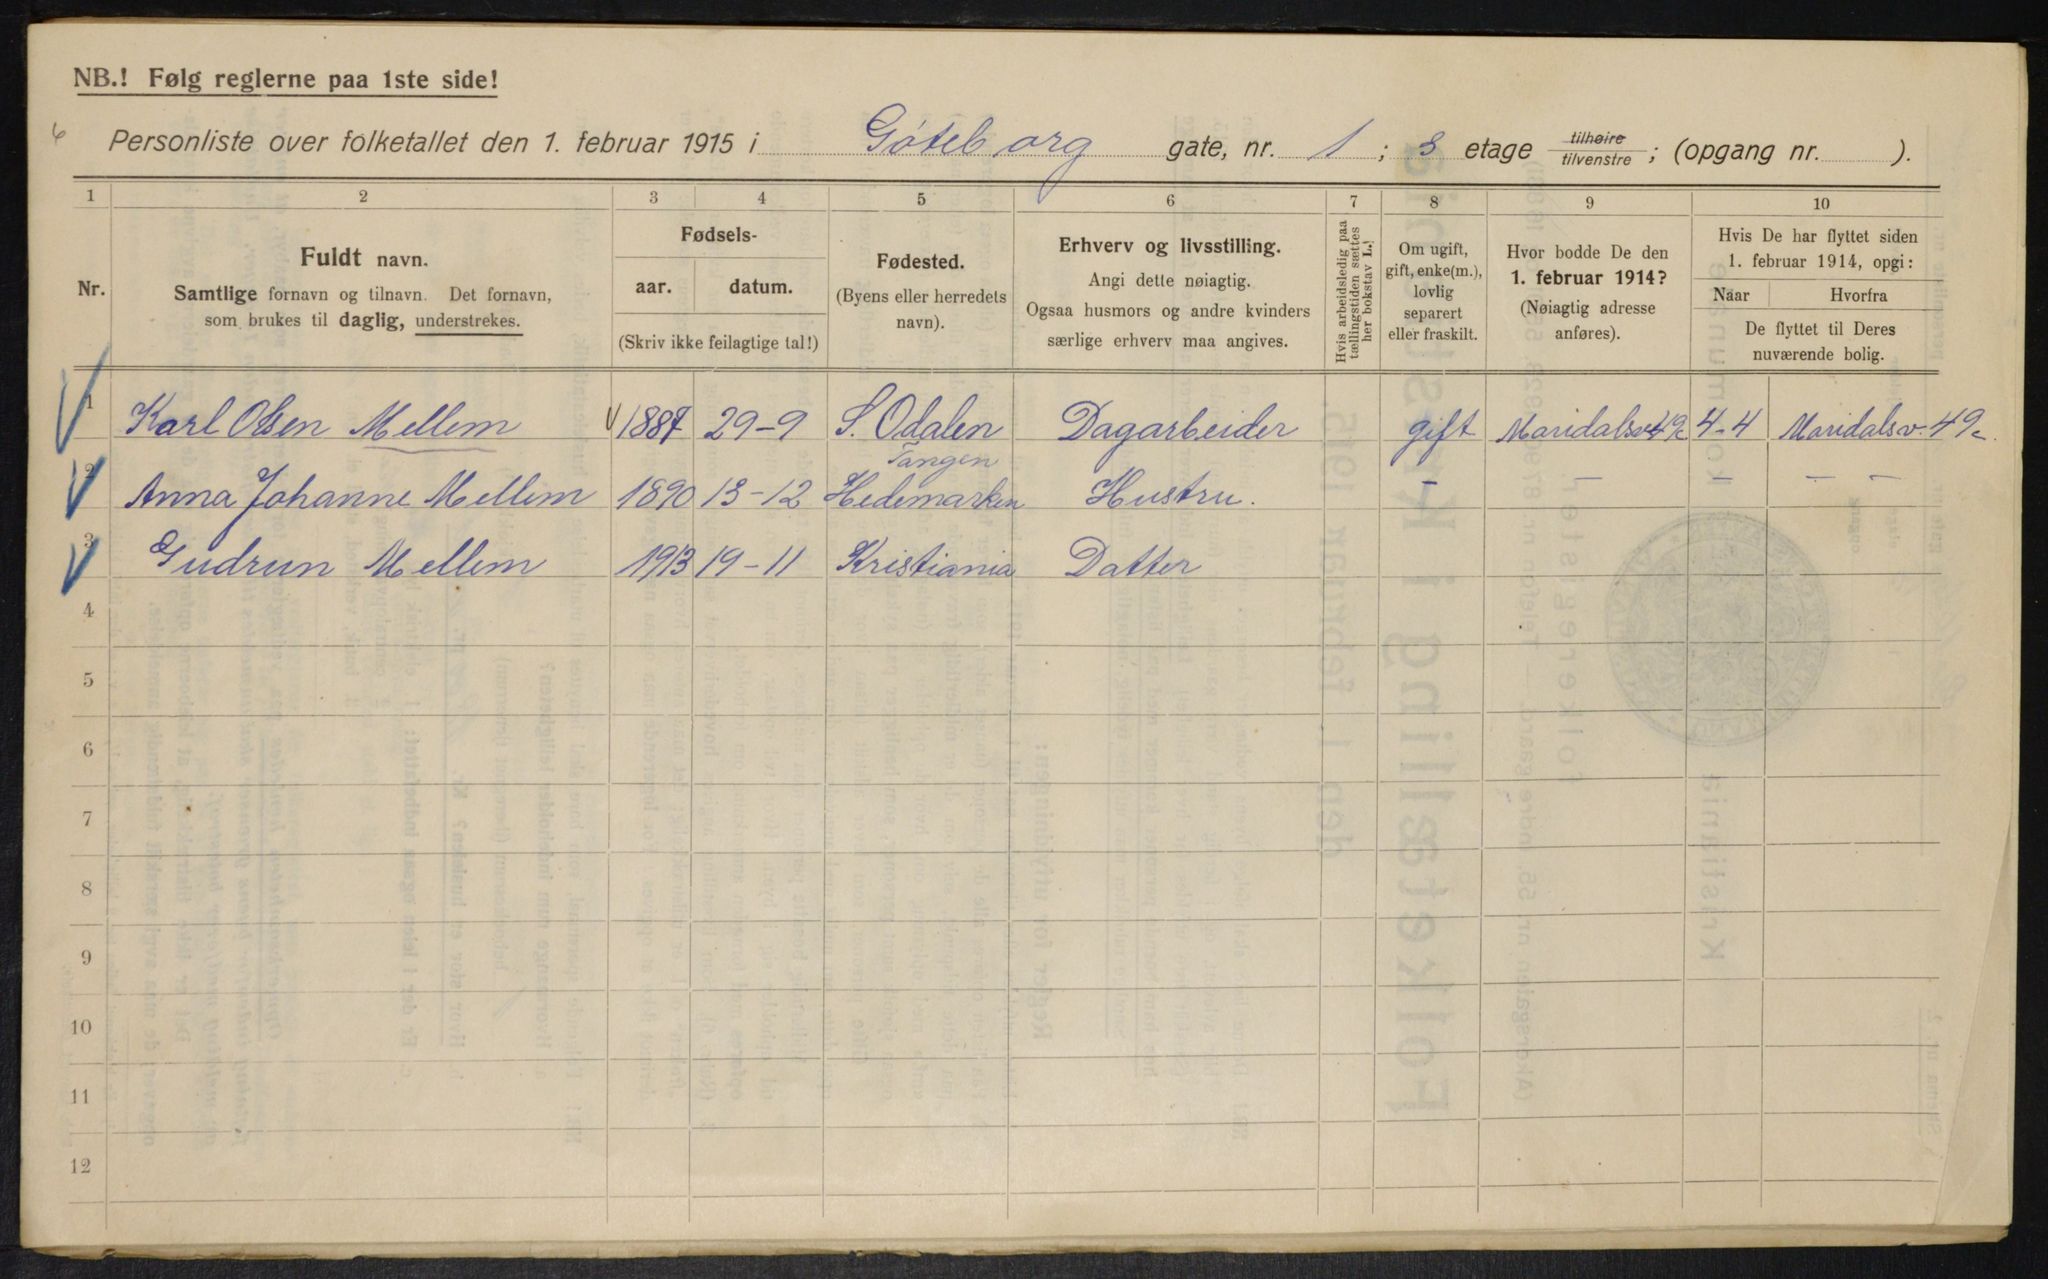 NB.! Følg reglerne paa 1ste side!
6
Personliste over folketallet den 1. februar 1915 i Göteborg gate, nr. 1 ; 3 etage tilhøire
tilvenstre ; (opgang nr. ).
1 2 3 4 5 6 7 8 9 10
Nr.
Fuldt navn.
Samtlige fornavn og tilnavn. Det fornavn,
som brukes til daglig, understrekes.
Fødsels-
aar. datum.
(Skriv ikke feilagtige tal!)
Fødested.
(Byens eller herredets
navn).
Erhverv og livsstilling.
Angi dette nøiagtig.
Ogsaa husmors og andre kvinders
særlige erhverv maa angives.
Hvis arbeidsledig paa
tællingstiden sættes
her bokstav L.)
Om ugift,
gift, enke(m.),
lovlig
separert
eller fraskilt.
Hvor bodde De den
1. februar 1914?
(Nøiagtig adresse
anføres).
Hvis De har flyttet siden
1. februar 1914, opgi:
Naar Hvorfra
De flyttet til Deres
nuværende bolig.
1 Karl Olsen Mellem 1887 29-9 S. Odalen Dagarbeider gift Maridalsv 49c 4-4 Maridalsv. 49c.
Tangen
2 Anna Johanne Mellem 1890 13-12 Hedemarken Hustru. - - - - -
3 Gudrun Mellem 1913 19-11 Kristiania Datter
4
5
6
7
8
9
10
11
12